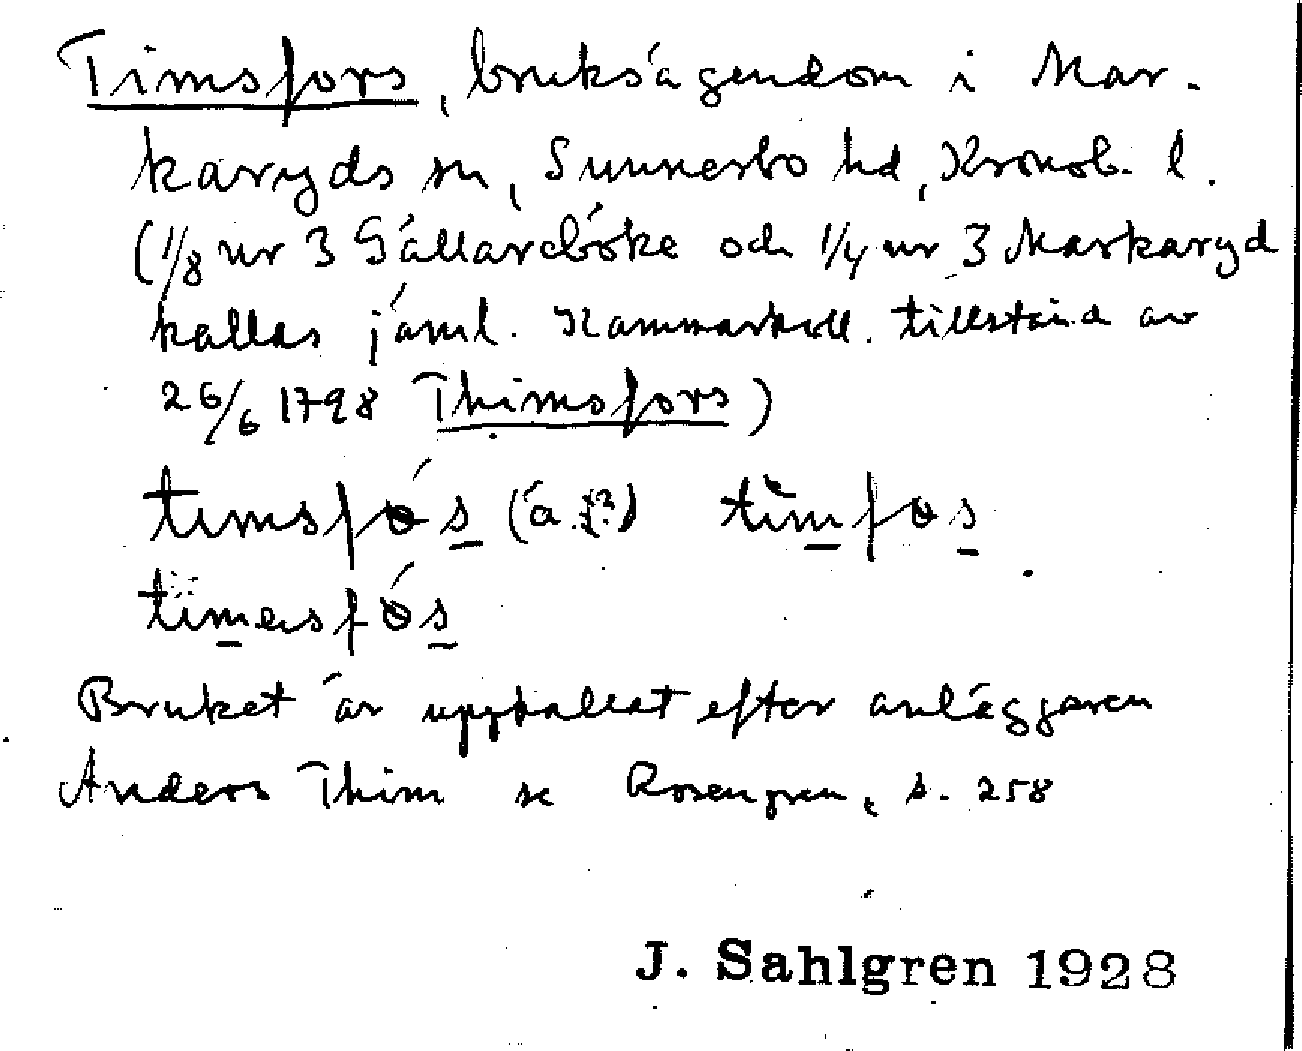 Timsfors, bruksägendom i Mar-
karyds sn, Sunnerbo hd, Kronob. l.
(1/8 nr 3 Gällareböke och 1/4 nr 3 Markaryd
kallas jäml. Kammarkoll. tillstånd av
26/6 1798 Thimsfors)
timsfós (a ?) timfos
timersfós
Bruket är uppkallat efter anläggaren
Anders Thim se Rosengren, s. 258
J. Sahlgren 1928